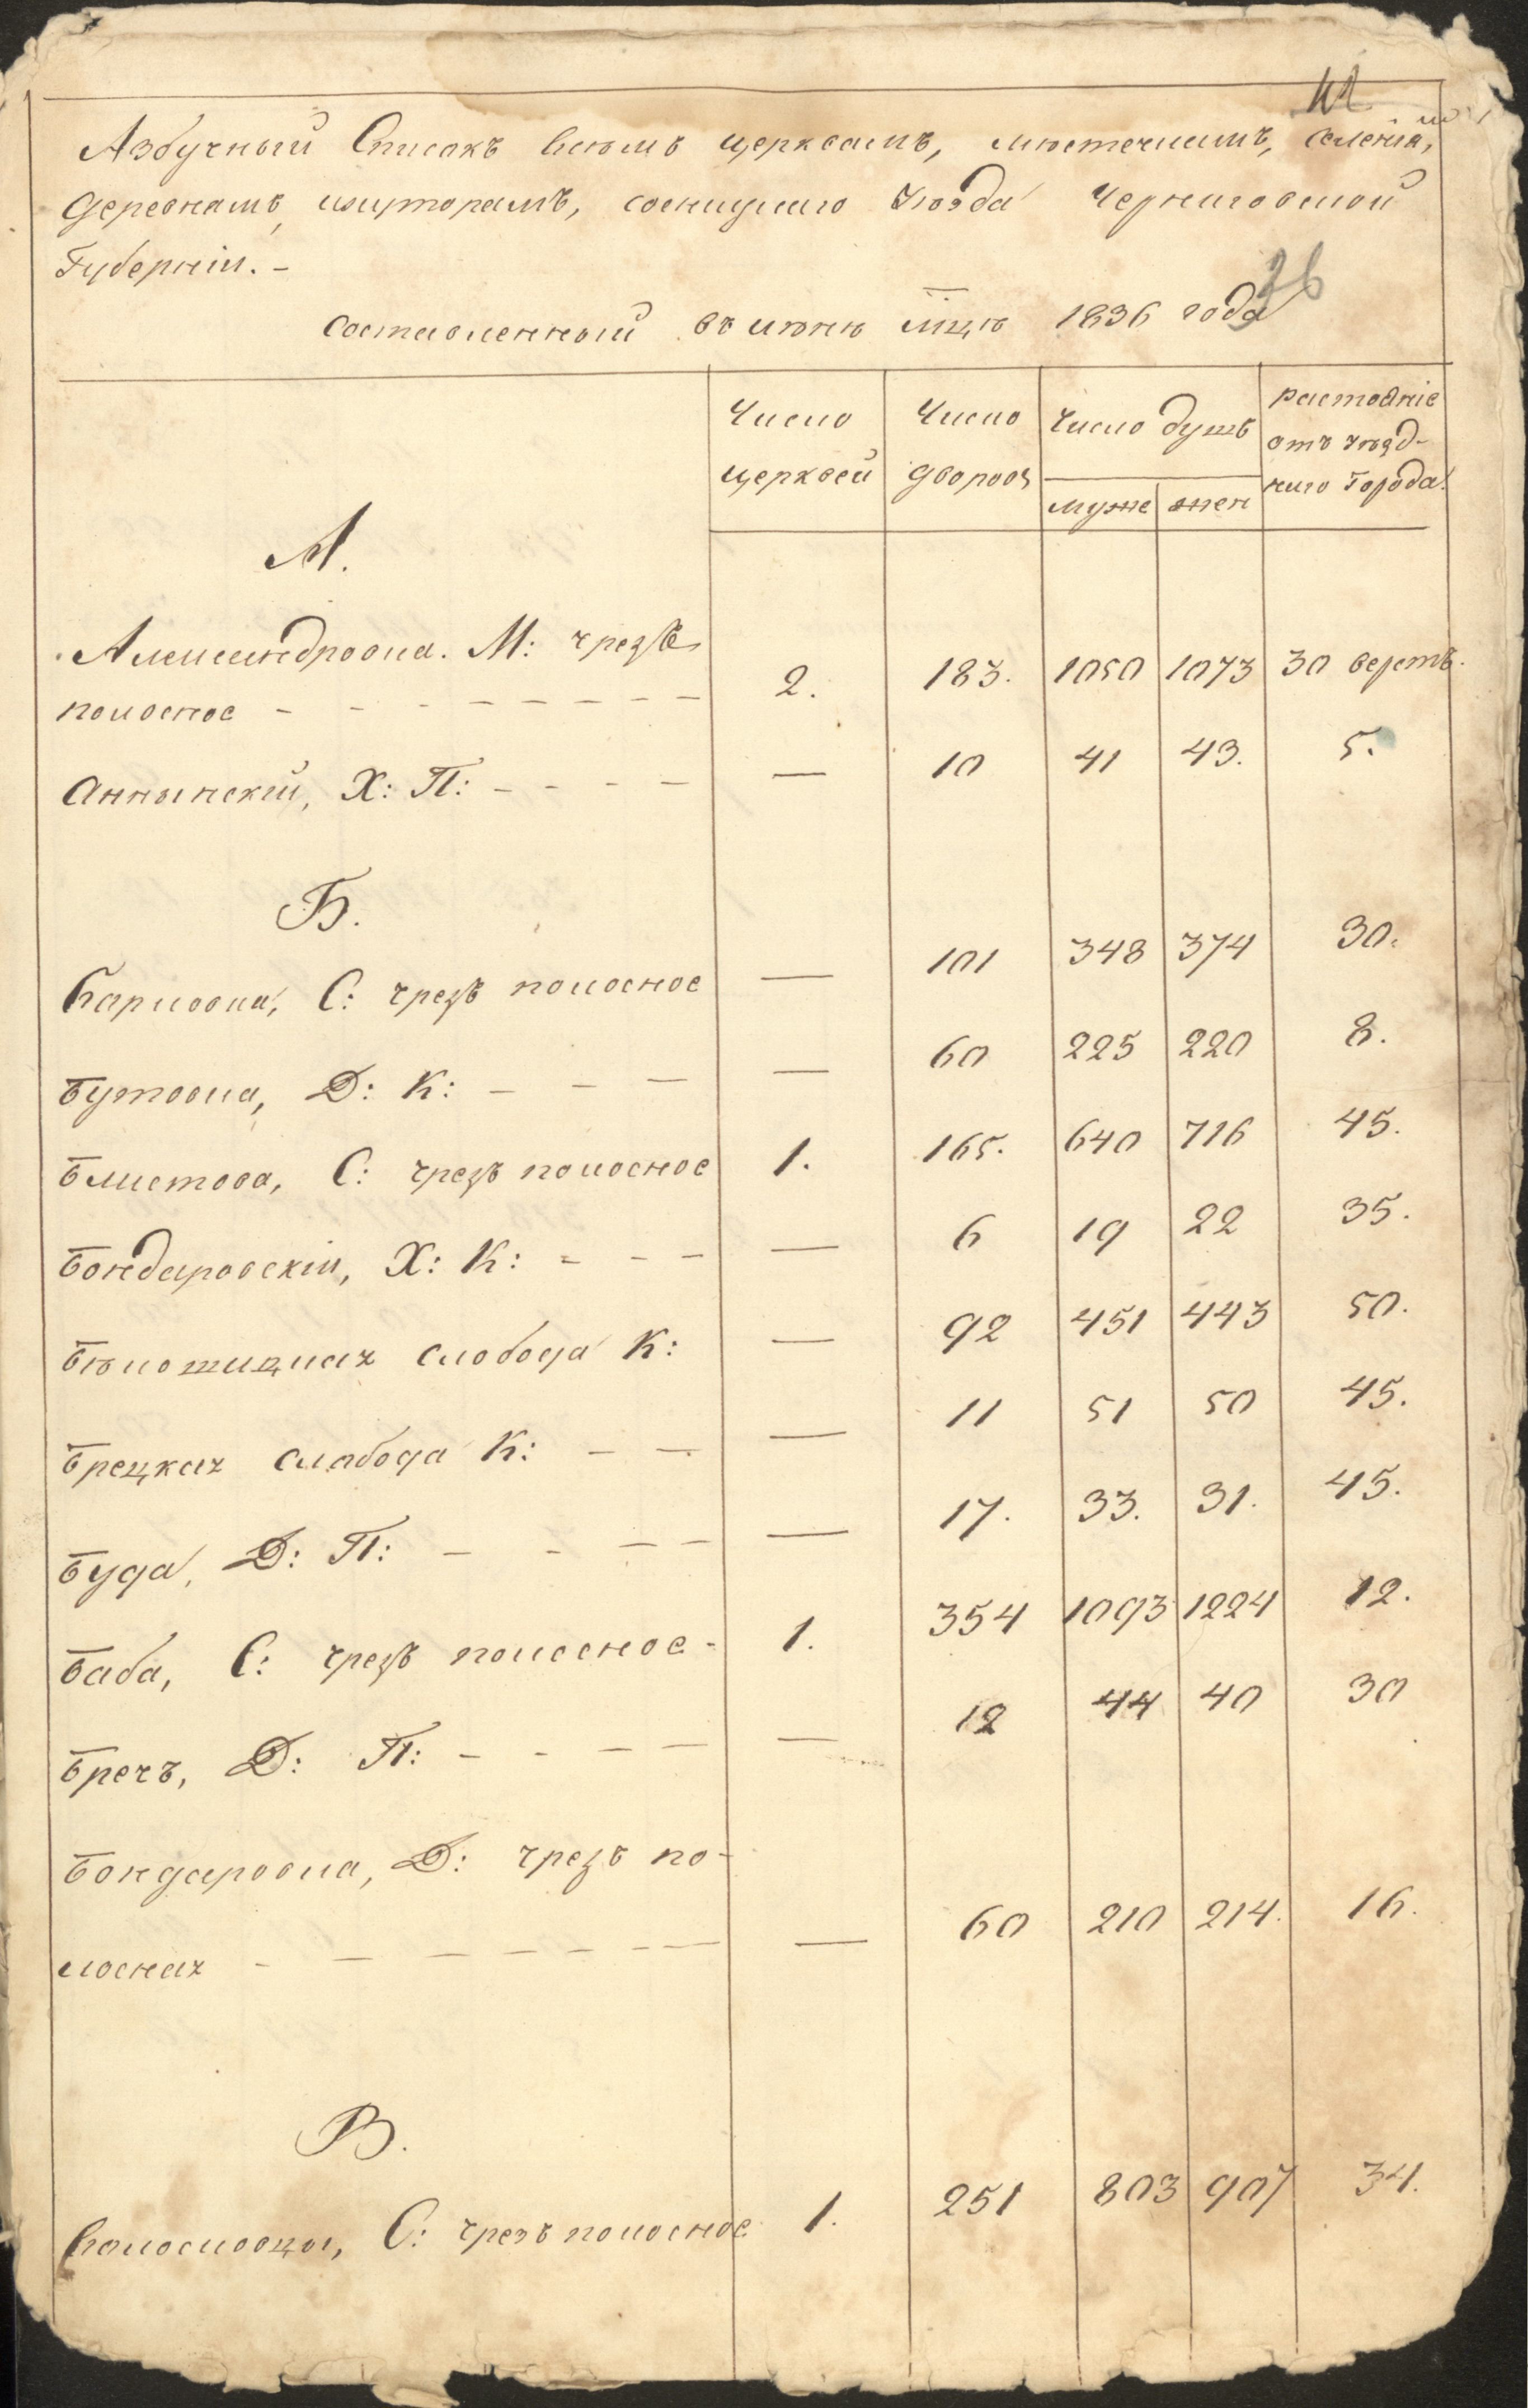 Азбучный Списокъ всѣмъ церквамъ, мѣстечкамъ, селенія,
деревнямъ, хуторамъ, сосницкаго уѣзда Черниговской
Губерніи. –
составленный въ июнѣ мцѣ 1836 года
36
Число церквей
Число дворовъ
Число душъ
муже
жен
растояніе
отъ уѣзд-
наго Города.
А.
Александровка. М: чрезъ
полосное – – – – – – – – 2. 183. 1050 1073 30 верстъ.
Аннынскій, Х: П: – – – – — 10 41 43. 5.
Б.
Барловка, С: чрезъ полосное — 101 348 374 30.
Бутовка, Д: К: – – – — 60 225 220 8.
Блистова, С: чрезъ полосное 1. 165. 640 716 45.
Бондаровскій, Х: К: – – – — 6 19 22 35.
Бѣлошицкая слобода К: — 92 451 443 50.
Брецкая слабода К: – – — 11 51 50 45.
Буда, Д: П: – – – – — 17. 33. 31. 45.
Баба, С: чрезъ полосное – 1. 354 1093 1224 12.
Бречъ, Д: П: – – – – — 12 44 40 30
Бондаровка, Д: чрезъ по-
лосная – – – – – – – — 60 210 214. 16.
В.
Волосковцы, С: чрезъ полосное 1. 251 803 907 34.